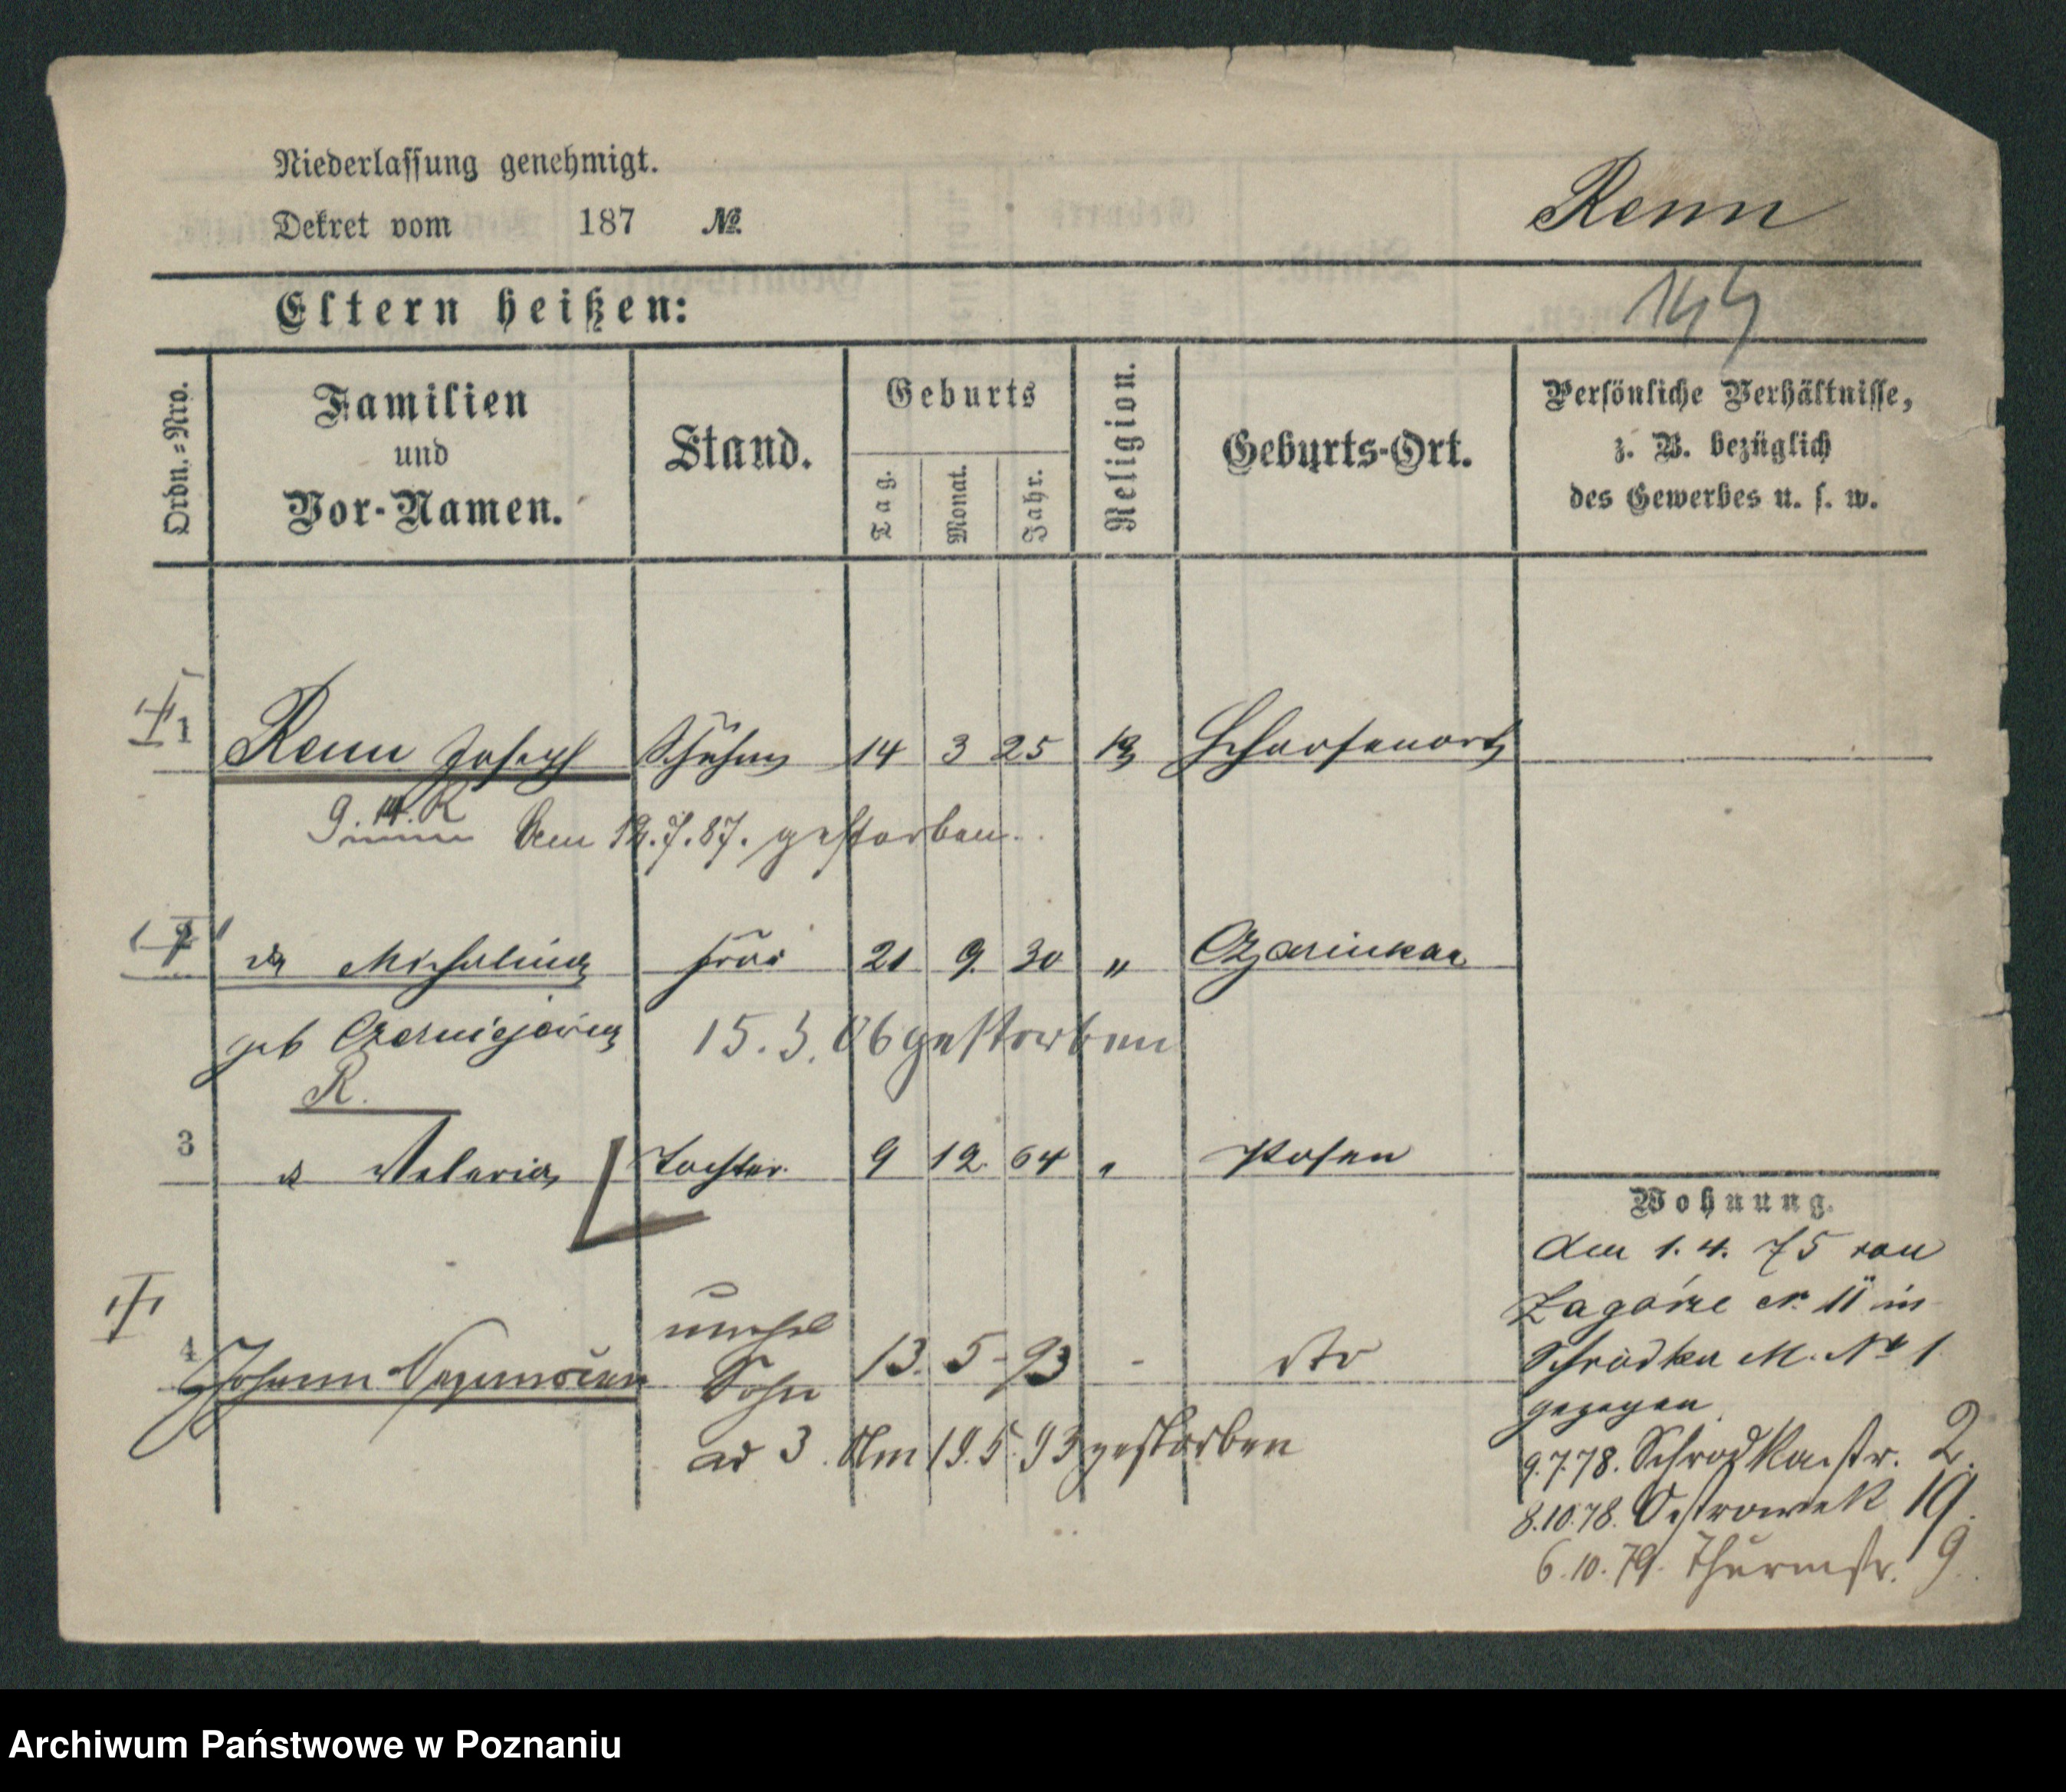 Niederlassung genehmigt.
Dekret vom 187 №.
Renn
144
Eltern heißen:
Ordn.-Nro.
Familien und Vor-Namen.
Stand.
Geburts
Tag.
Monat.
Jahr.
Religion.
Geburts-Ort.
Persönliche Verhältnisse, z. B. bezüglich des Gewerbes u. s. w.
1 Renn Joseph 14 3 25 Scharfenort
R. den 12.7.87. gestorben.
2 Michalina Frau 21 9 30 " Czarnikau
geb
15.3.06 gestorben
R.
3 Valeria Tochter 9 12 64 " Posen
4 Johann unehel Sohn 13. 5 - 93 - dto
ad 3. Am 19.5.93 gestorben
Wohnung.
den 1. 4. 75 von
Zagórze № 11 in
Schrodka M. № 1
gezogen.
9.7.78. Schrodkastr. 2.
8.10.78. Ostrowek 19.
6.10.79. Thurmstr. 9.
Archiwum Państwowe w Poznaniu